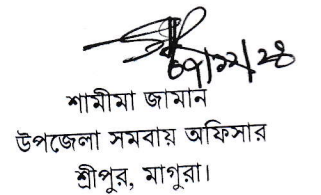 ০৭/১২/২৪
শামীমা জামান
উপজেলা সমবায় অফিসার
শ্রীপুর, মাগুরা।